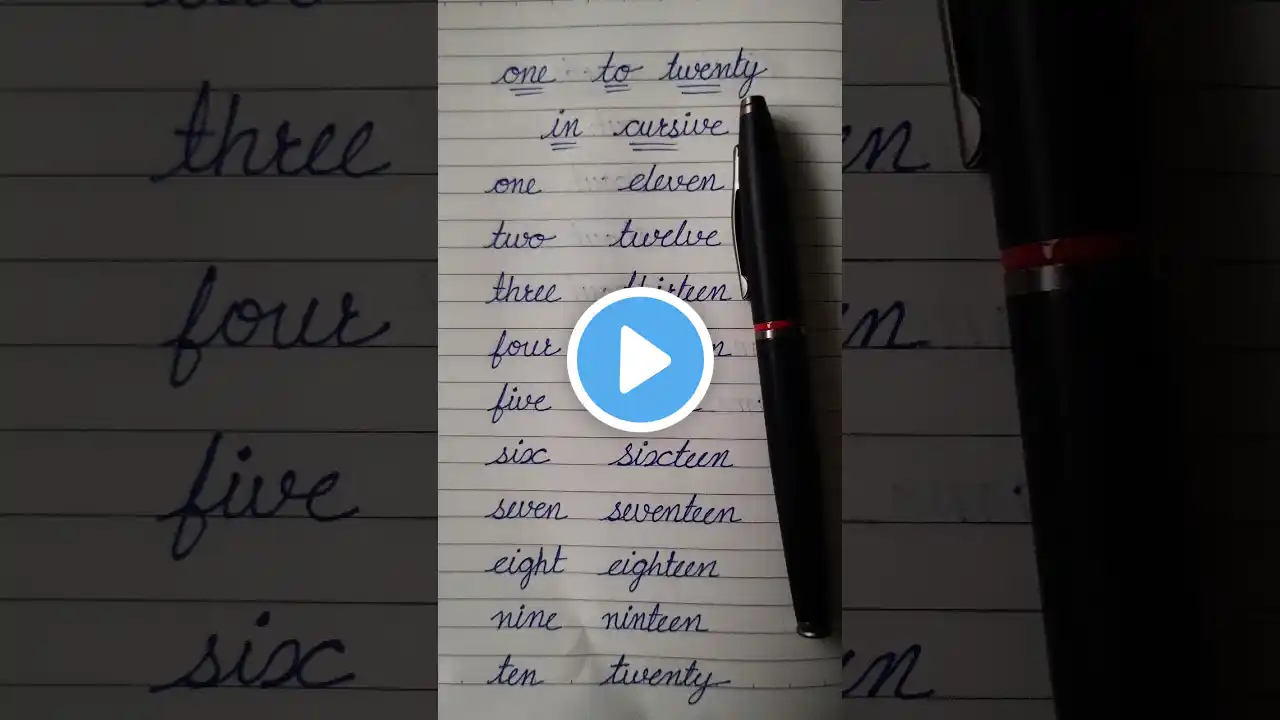 one to twenty
in cursive
one eleven
two twelve
three thirteen
four
five
six sixteen
seven seventeen
eight eighteen
nine ninteen
ten twenty
three
four
five
six